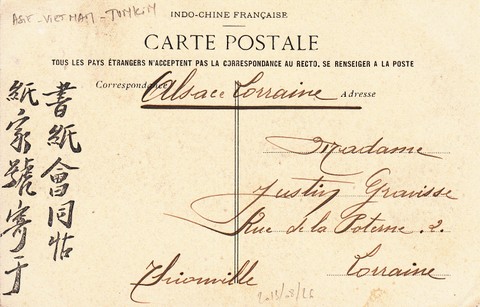 ASIE - VIETNAM - TONKIN
INDO-CHINE FRANÇAISE
CARTE POSTALE
TOUS LES PAYS ÉTRANGERS N'ACCEPTENT PAS LA CORRESPONDANCE AU RECTO, SE RENSEIGER A LA POSTE
Correspondance
Adresse
Alsace Lorraine
Madame
Justin Gravisse
Rue de la Poterne . 2.
Thionville
Lorraine
書紙會同帖
紙家號寄于